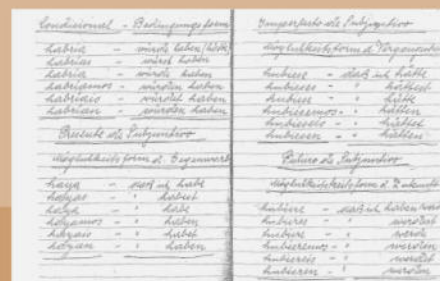 Condicional - Bedingungsform
habria - würde haben (hätte)
habrias - würdest haben
habria - würde haben
habriamos - würden haben
habriais - würdet haben
habrian - würden haben
Presente de Subjuntivo
Möglichkeitsform d. Gegenwart
haya - daß ich habe
hayas - " habest
haya - " habe
hayamos - " haben
hayais - " habet
hayan - " haben
Imperfecto de Subjuntivo
Möglichkeitsform d. Vergangenh
hubiese - daß ich hätte
hubieses - " hättest
hubiese - " hätte
hubiesemos - " hätten
hubieseis - " hättet
hubiesen - " hätten
Futuro de Subjuntivo
Möglichkeitsform d. Zukunft
hubiere - daß ich haben werde
hubieres - " werdest
hubiere - " werde
hubieremos - " werden
hubiereis - " werdet
hubieren - " werden